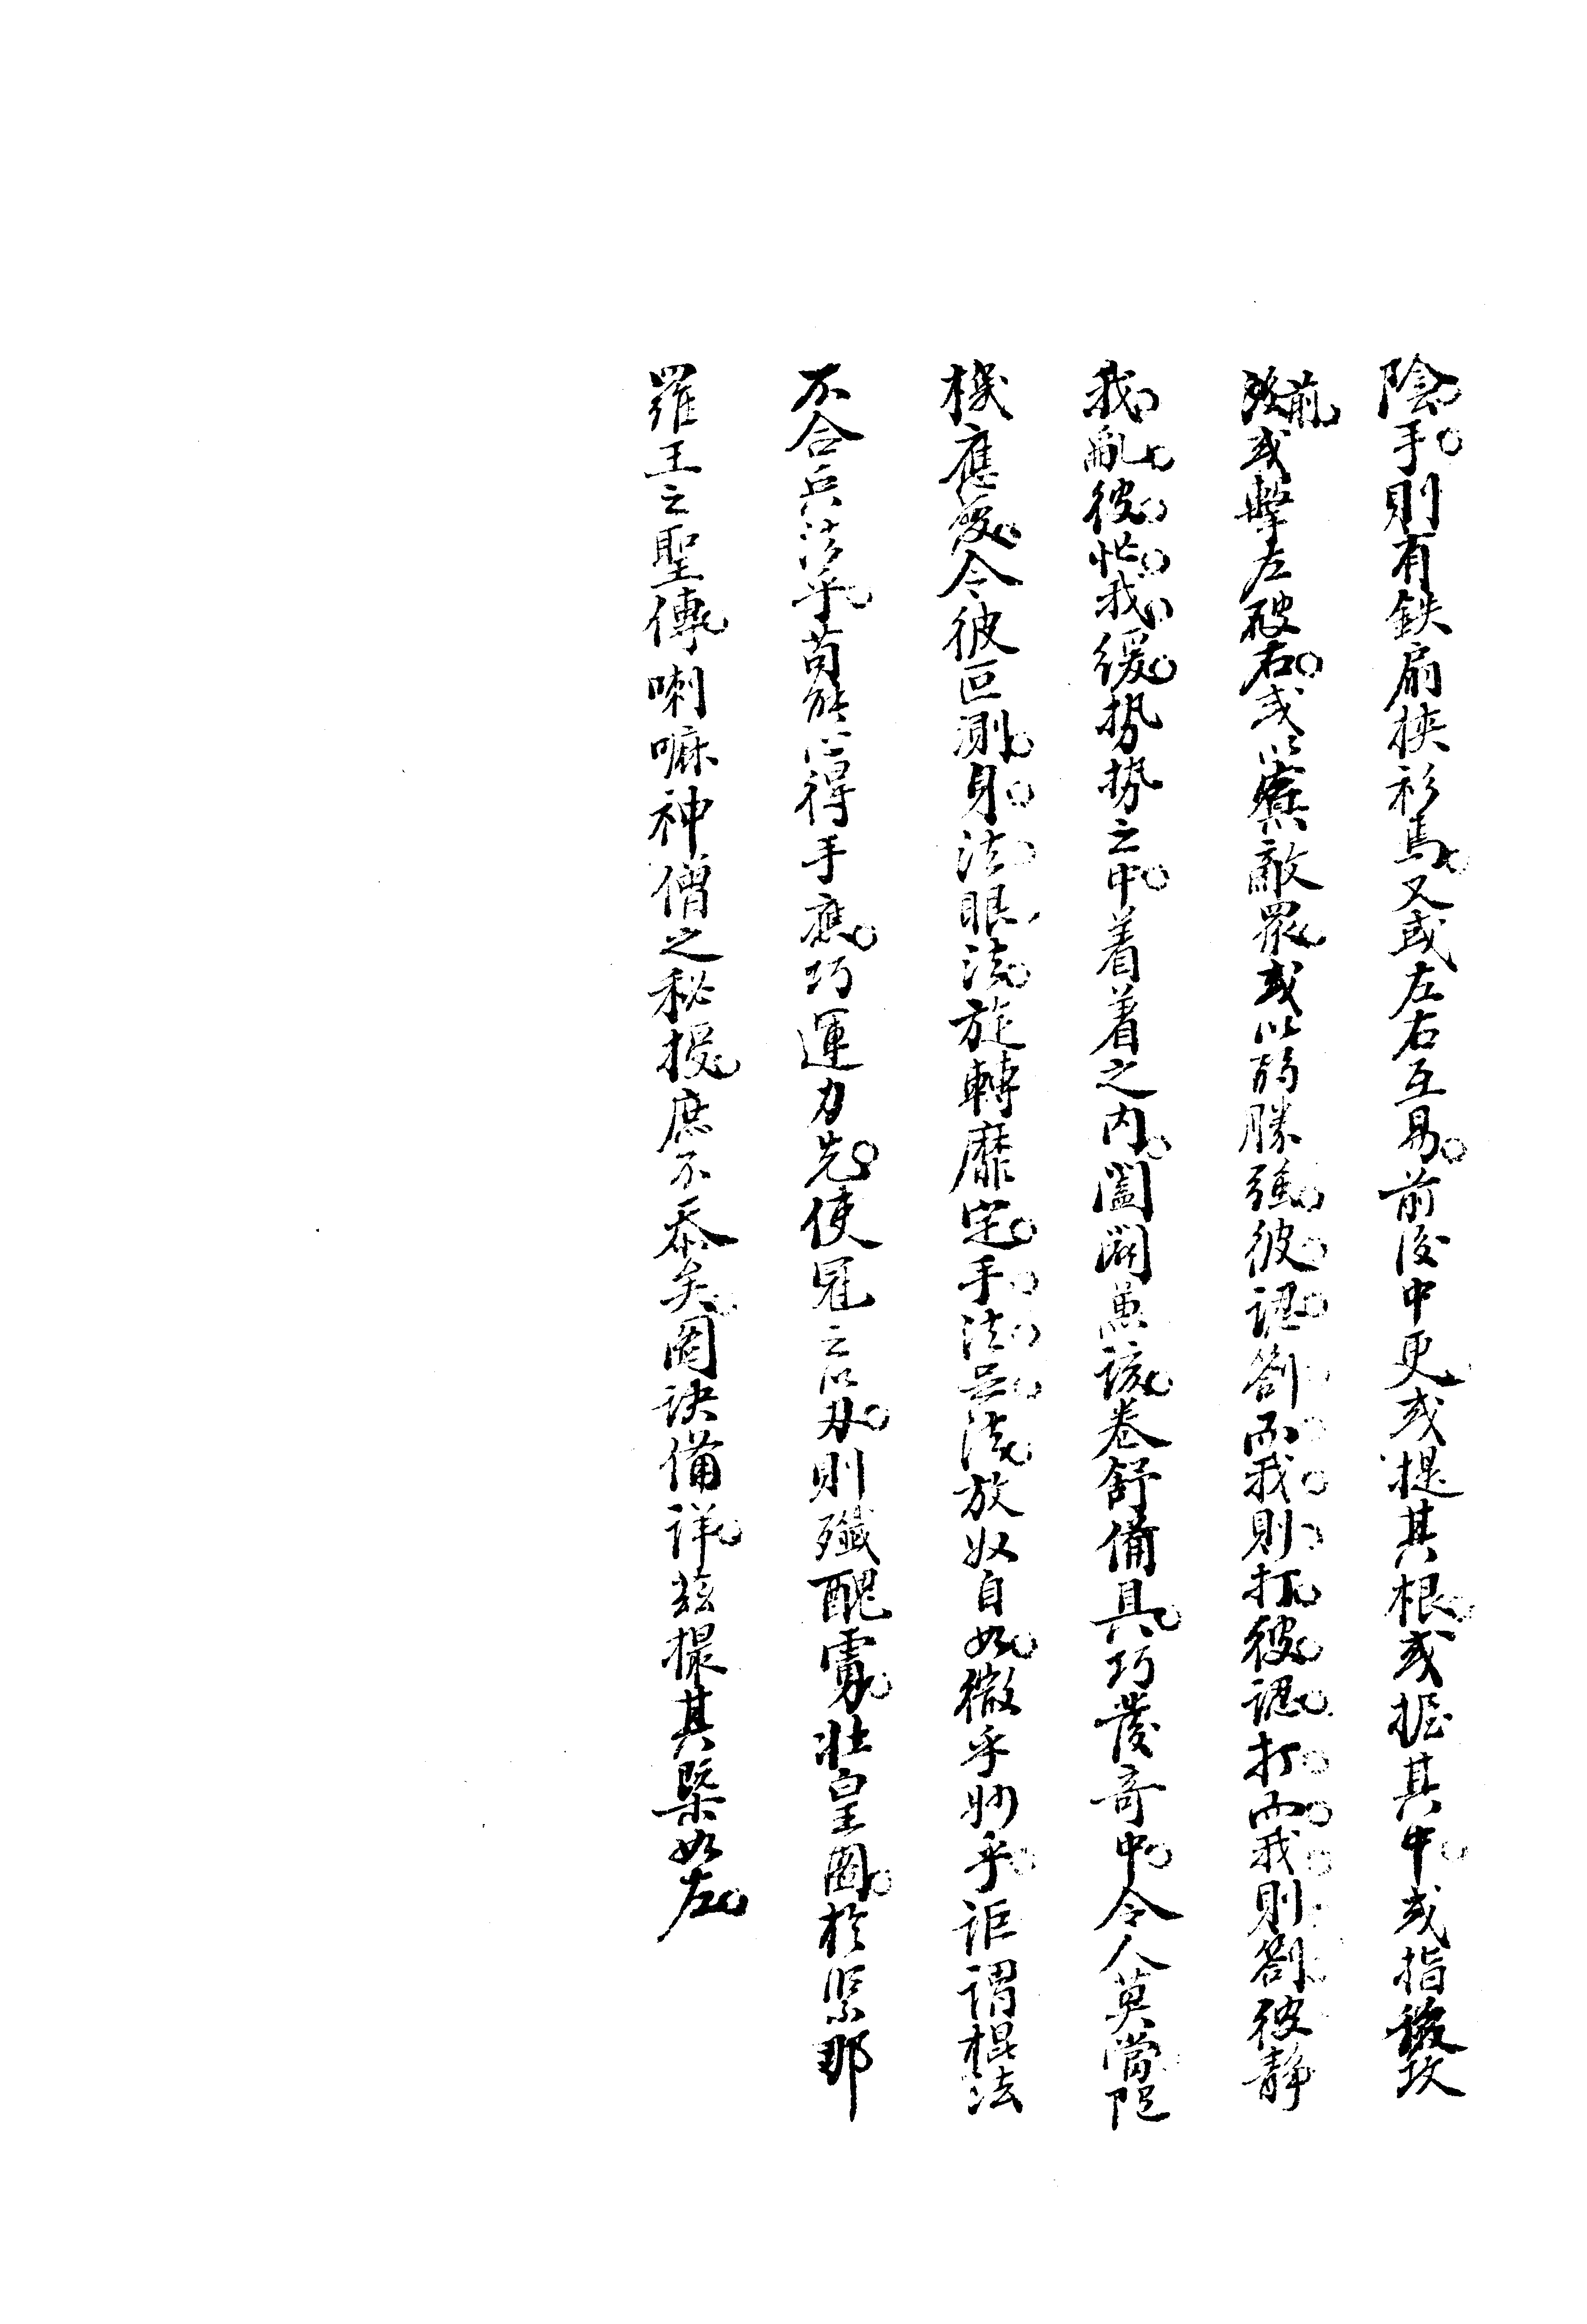 陰手則有鉄扇挾衫馬又或左右互易前後中更或提其根或握其中或指後攻
前或擊左破右或以寡敵眾或以弱勝強彼認劄而我則打彼認打而我則劄彼静
我亂彼忙我緩势势之中着着之内闔闢兼該卷舒備具巧發奇中令人莫當陀
機應發令彼叵測身法眼法旋轉靡定手法足法放收自如微乎妙乎詎謂棍法
不合兵法乎苟能心得手應巧運力先使冠之以刃則殲醜虜壯皇圖於緊那
羅王之聖傳喇嘛神僧之秘授庶不忝矣圖诀備详茲撮其槩如左